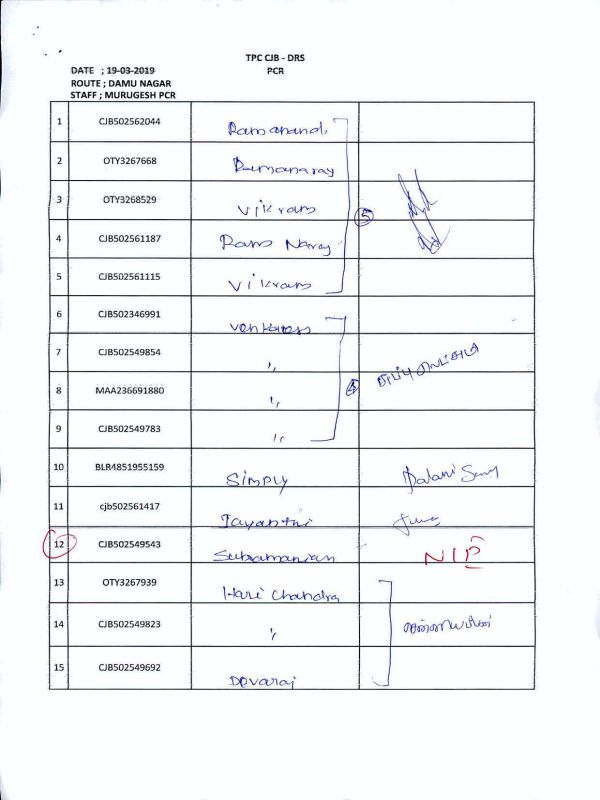 TPC CJB - DRS
PCR
DATE ; 19-03-2019
ROUTE ; DAMU NAGAR
STAFF ; MURUGESH PCR
1 CJB502562044 Ramanand
2 OTY3267668 Ramanaray
3 OTY3268529 Vikram
5
4 CJB502561187 Ram Naray
5 CJB502561115 Vikram
6 CJB502346991
7 CJB502549854 〃
8 MAA236691880 〃
4
9 CJB502549783 〃
10 BLR4851955159 Simply
11 cjb502561417 Jayanthi
12 CJB502549543 Subramanian NIP
13 OTY3267939 Hari Chandra
14 CJB502549823 〃
15 CJB502549692 Devaraj